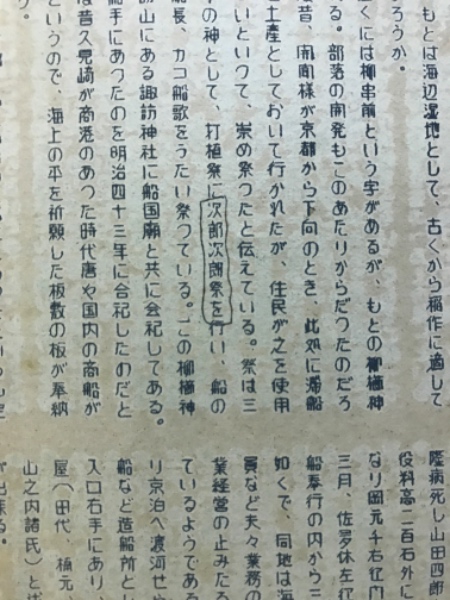 もとは海辺湿地として、古くから稲作に適して
ろうか。
くには柳串前という字があるが、もとの柳櫛神
る。部落の開発もこのあたりからだつたのだろ
昔、開聞様が京都から下向のとき、此処に滞船
土産としておいて行かれたが、住民が之を使用
いといつて、崇め祭つたと伝えている。祭は三
の神として、打植祭に次郎次郎祭を行い、船の
長、カコ船歌をうたい祭つている。この柳櫛神
山にある諏訪神社に船国廟と共に合祀してある。
船手にあつたのを明治四十三年に合祀したのだと
昔久見崎が商港のあつた時代唐や国内の商船が
というので、海上の平を祈願した板敷の板が奉納
う。
隆病死し山田四郎
役料高二百石外に
なり岡元千右衛門
三月、佐多休左衛
船奉行の内から三
如くで、同地は海
員など夫々業務の
業経営の止みたる
ているようである
り京泊へ渡河せ
船など造船所とし
入口右手にあり、
屋(田代、楠元、
山之内諸氏)とは
が出来る。